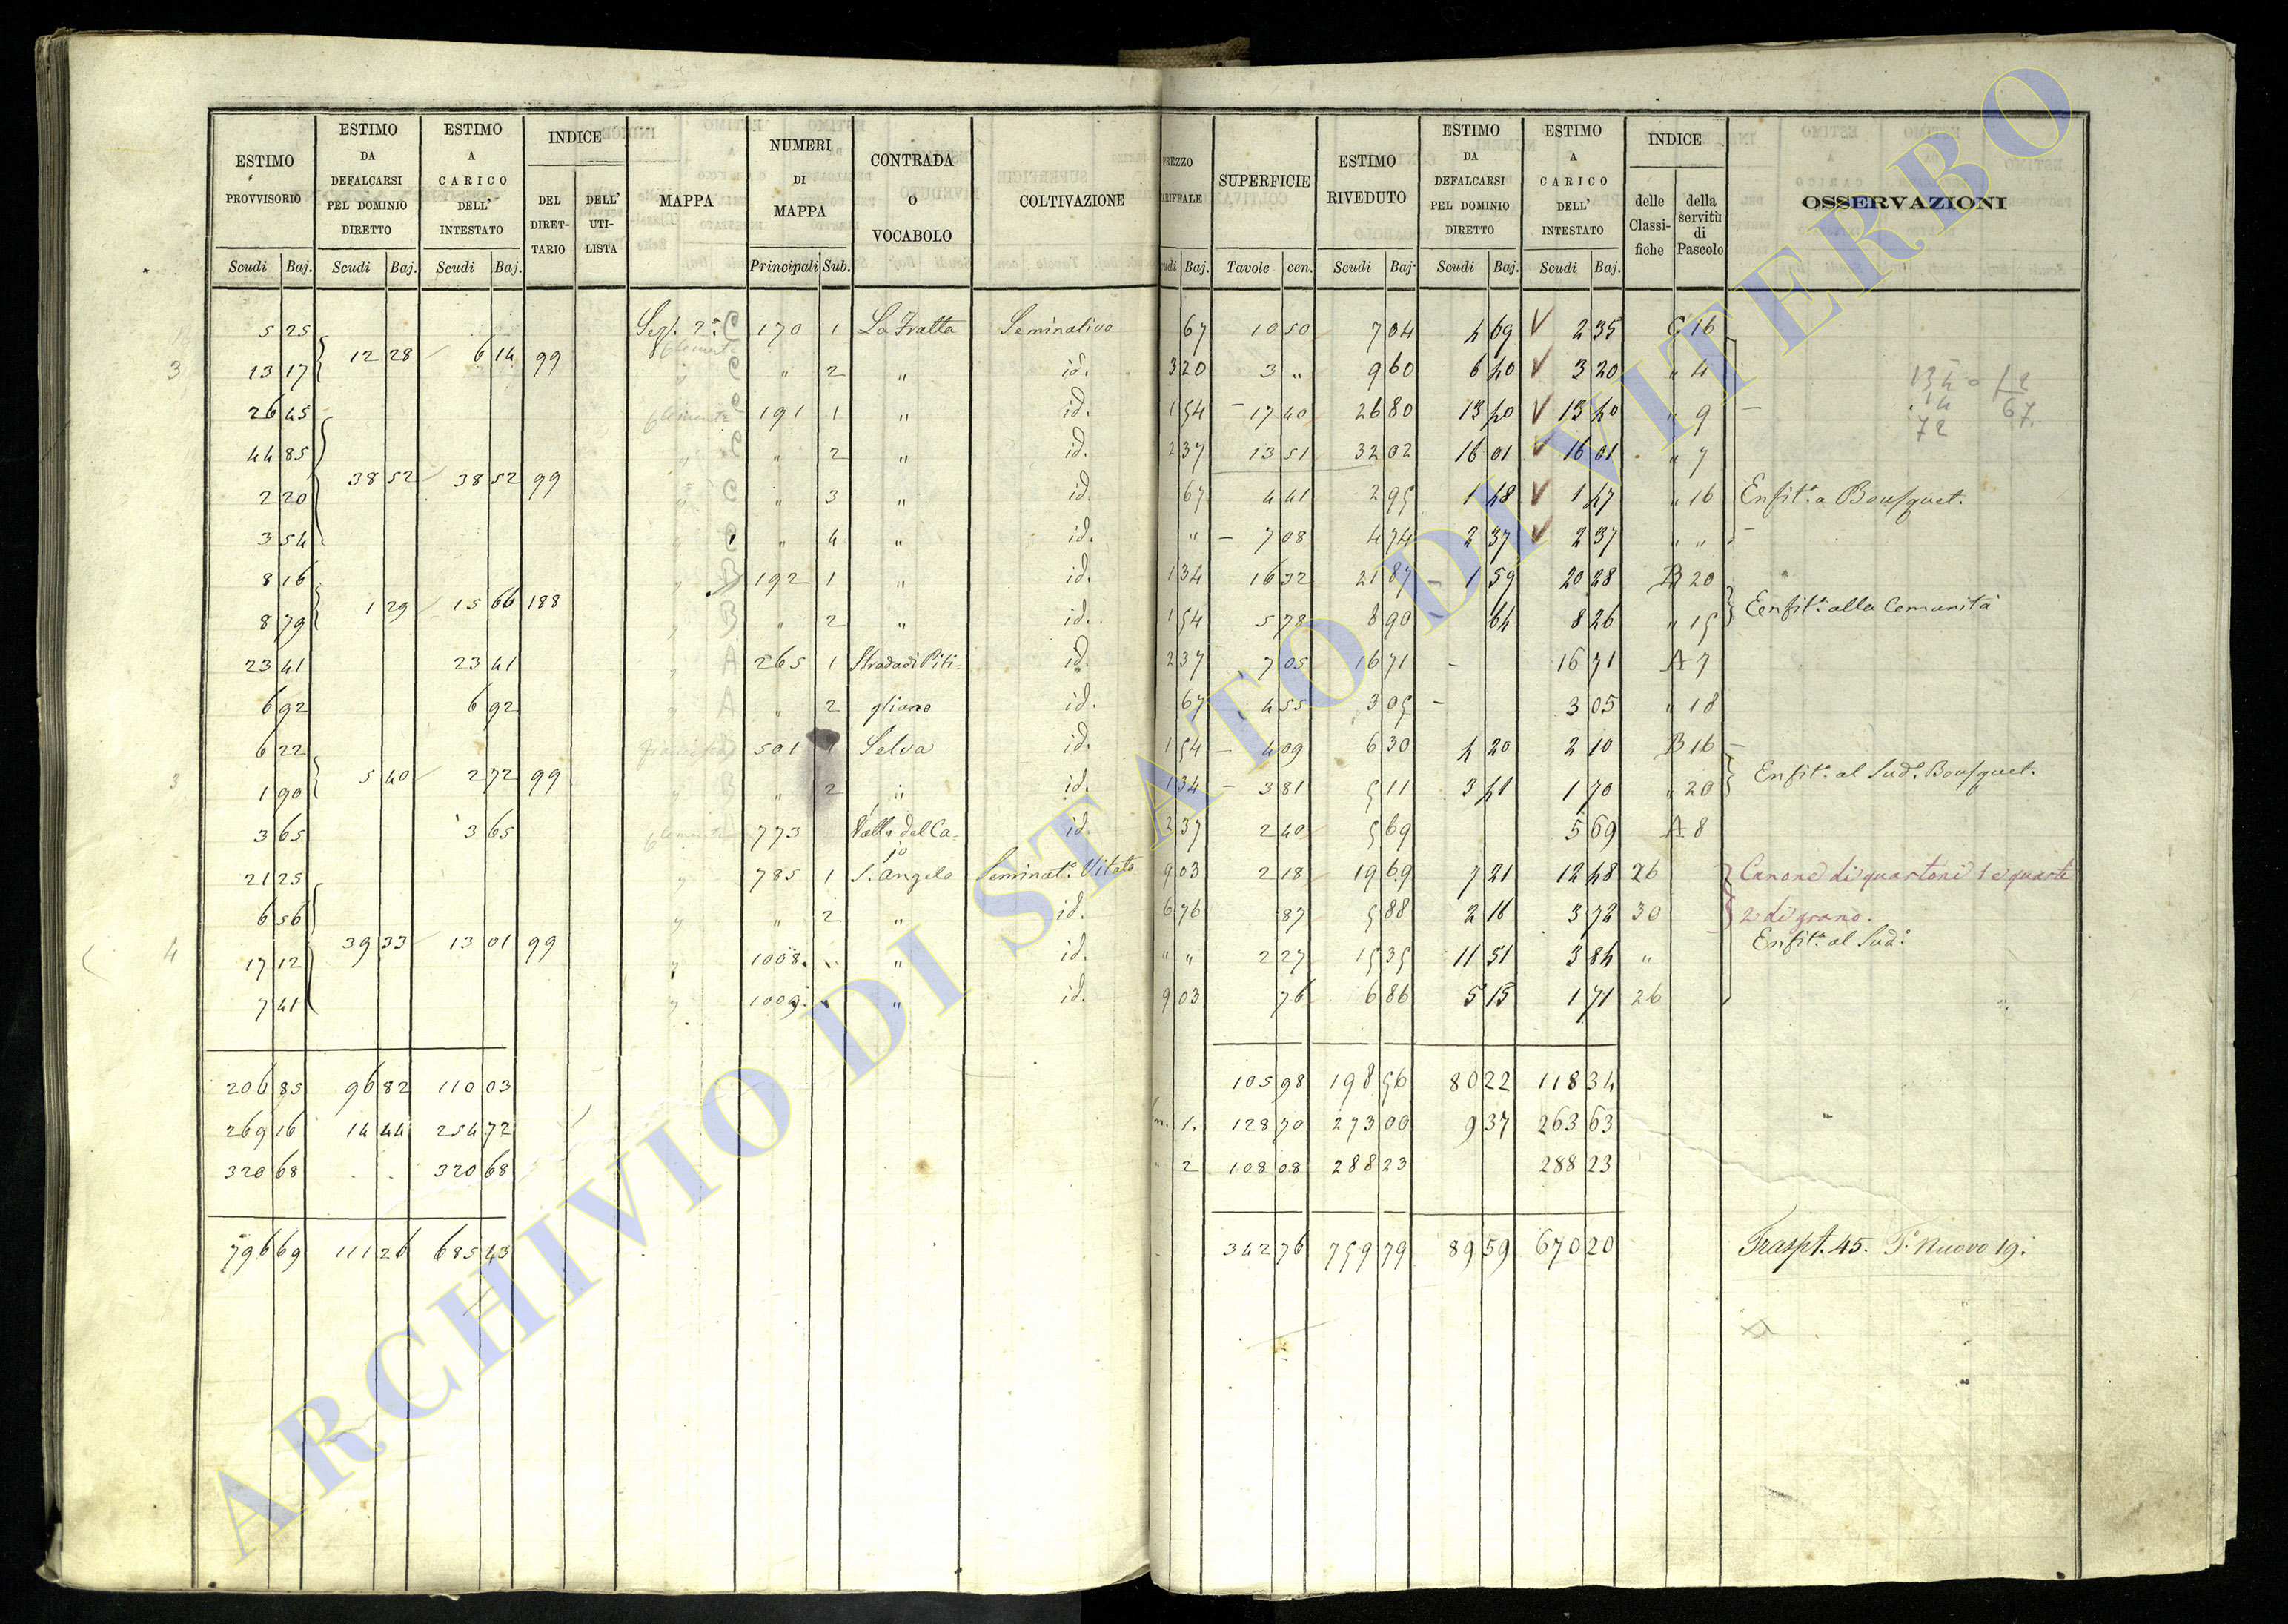 ESTIMO PROVVISORIO | ESTIMO DA DEFALCARSI PEL DOMINIO DIRETTO | ESTIMO A CARICO DELL' INTESTATO | INDICE DEL DIRETTARIO | DELL' UTILISTA | MAPPA | NUMERI DI MAPPA | CONTRADA O VOCABOLO | COLTIVAZIONE | PREZZO | SUPERFICIE | ESTIMO RIVEDUTO | ESTIMO DA DEFALCARSI PEL DOMINIO DIRETTO | ESTIMO A CARICO DELL' INTESTATO | INDICE delle Classifiche | della servitù di Pascolo | OSSERVAZIONI
Scudi Baj. | Scudi Baj. | Scudi Baj. | Principali Sub. | Baj. | Tavole cen. | Scudi Baj. | Scudi Baj. | Scudi Baj.
5 25 | Sez. 2ª C | 170 | 1 | La Fratta | Seminativo | 67 | 10 50 | 7 04 | 4 69 | V 2 35 | C 16
3 | 12 28 | 6 14 | 99
13 17 | " C | " | 2 | " | id. | 3 20 | 3 " | 9 60 | 6 40 | V 3 20 | " 4
26 45 | Clementi C | 191 | 1 | " | id. | 1 54 | 17 40 | 26 80 | 13 40 | V 13 40 | " 9
44 85 | " C | " | 2 | " | id. | 2 37 | 13 51 | 32 02 | 16 01 | V 16 01 | " 7
38 52 | 38 52 | 99
2 20 | " C | " | 3 | " | id. | 67 | 4 41 | 2 95 | 1 48 | V 1 47 | " 16 | Enfit.ª a Bousquet.
3 54 | " C | " | 4 | " | id. | " | 7 08 | 4 74 | 2 37 | V 2 37 | " "
8 16 | " B | 192 | 1 | " | id. | 1 34 | 16 32 | 21 87 | 1 59 | 20 28 | B 20
1 29 | 15 66 | 188 | Enfit.ª alla Comunità
8 79 | " B | " | 2 | " | id. | 1 54 | 5 78 | 8 90 | 64 | 8 26 | " 15
23 41 | 23 41 | " A | 265 | 1 | Strada di Piti- | id. | 2 37 | 7 05 | 16 71 | 16 71 | A 7
6 92 | 6 92 | " A | " | 2 | gliano | id. | 67 | 4 55 | 3 05 | 3 05 | " 18
6 22 | 501 | 1 | Selva | id. | 1 54 | 4 09 | 6 30 | 4 20 | 2 10 | B 16
3 | 5 40 | 2 72 | 99 | Enfit.ª al Sud.º Bousquet.
1 90 | " B | " | 2 | " | id. | 1 34 | 3 81 | 5 11 | 3 41 | 1 70 | " 20
3 65 | 3 65 | 773 | Valle del Ca- | id. | 2 37 | 2 40 | 5 69 | 5 69 | A 8
jo
21 25 | " | 785 | 1 | S. Angelo | Seminat.º Vitato | 9 03 | 2 18 | 19 69 | 7 21 | 12 48 | 26 | Canone di quartoni 1 e quarti
6 56 | " | " | 2 | " | id. | 6 76 | 87 | 5 88 | 2 16 | 3 72 | 30 | 2 di grano.
4 | 39 33 | 13 01 | 99 | Enfit.ª al Sud.º
17 12 | " | 1008. | " | id. | " " | 2 27 | 15 35 | 11 51 | 3 84 | "
7 41 | " | 1009. | " | id. | 9 03 | 76 | 6 86 | 5 15 | 1 71 | 26
206 85 | 96 82 | 110 03 | 105 98 | 198 56 | 80 22 | 118 34
269 16 | 14 44 | 254 72 | 1. | 128 70 | 273 00 | 9 37 | 263 63
320 68 | . . | 320 68 | " 2 | 108 08 | 288 23 | 288 23
796 69 | 111 26 | 685 43 | 342 76 | 759 79 | 89 59 | 670 20 | Traspt. 45. P. Nuovo 19.
134
14
72
2
67
ARCHIVIO DI STATO DI VITERBO